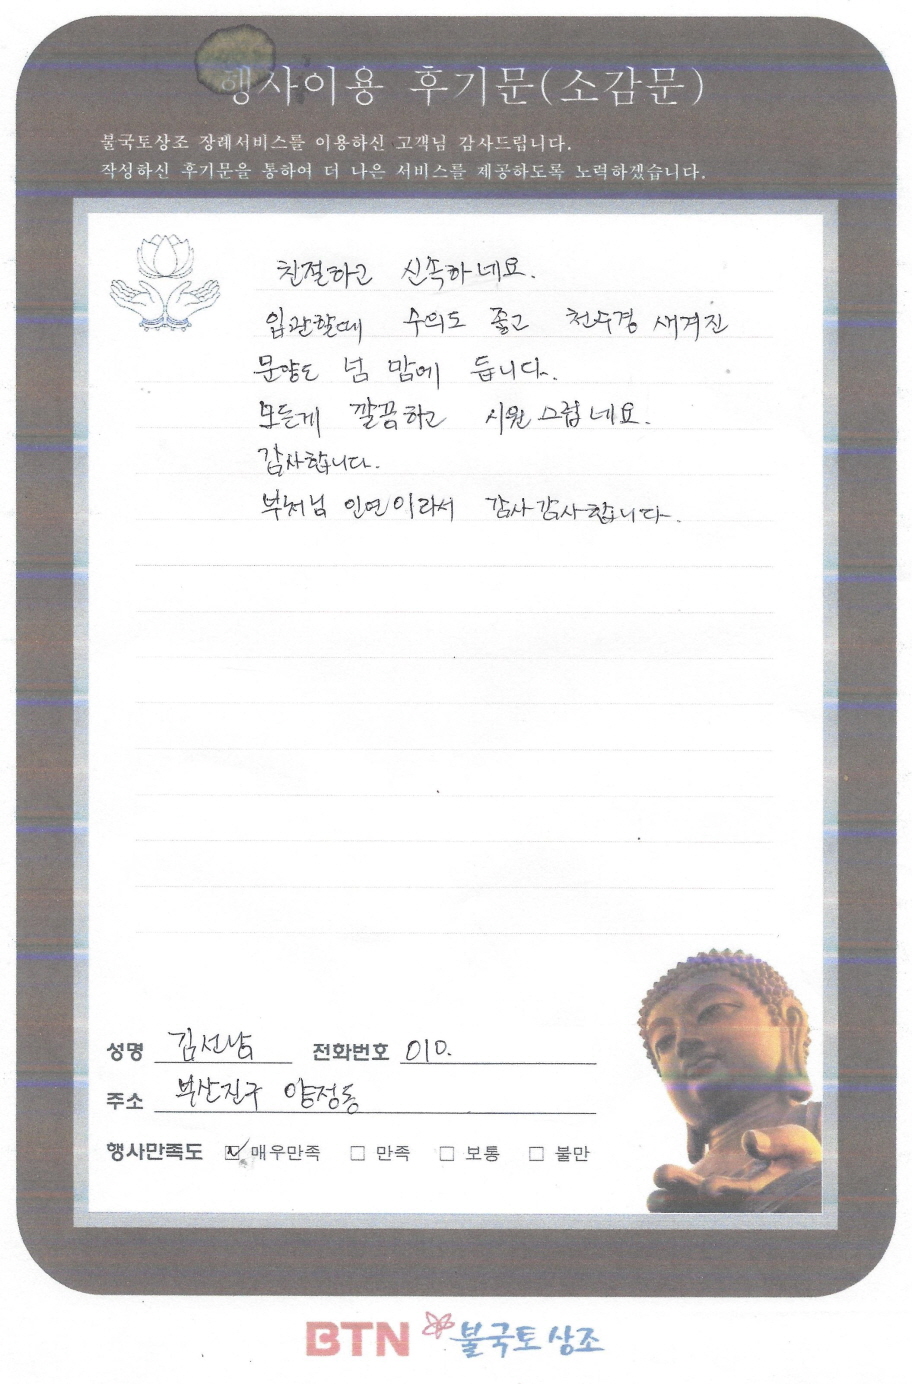 행사이용 후기문(소감문)
불국토상조 장례서비스를 이용하신 고객님 감사드립니다.
작성하신 후기문을 통하여 더 나은 서비스를 제공하도록 노력하겠습니다.
친절하고 신속하네요.
입관할때 수의도 좋고 천수경 새겨진
문양도 넘 맘에 듭니다.
모든게 깔끔하고 시원스럽네요.
감사합니다.
부처님 인연이라서 감사감사합니다.
성명 김선남 전화번호 010.
주소 부산진구 양정동
행사만족도 ☑ 매우만족 □ 만족 □ 보통 □ 불만
BTN 불국토상조